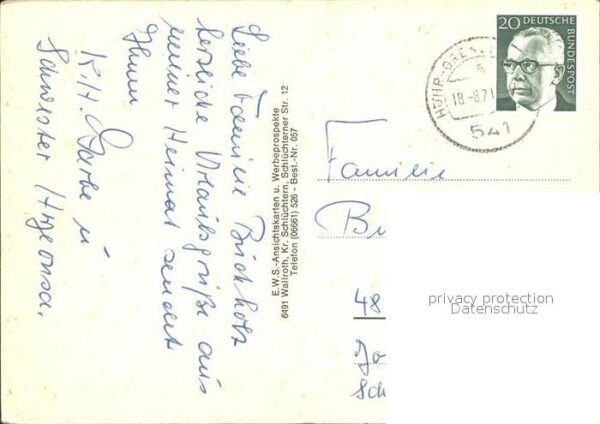 Liebe Familie Buchholz
herzliche Urlaubsgrüße aus
meiner Heimat sendet
Ihnen
K. H. u
Schwister
E.W.S.-Ansichtskarten u. Werbeprospekte
6491 Wallroth, Kr. Schlüchtern, Schlüchterner Str. 12
Telefon (06661) 526 - Best.-Nr. 057
20 DEUTSCHE BUNDESPOST
18.-8.71
541
Familie
Bu
48
Sch
privacy protection
Datenschutz